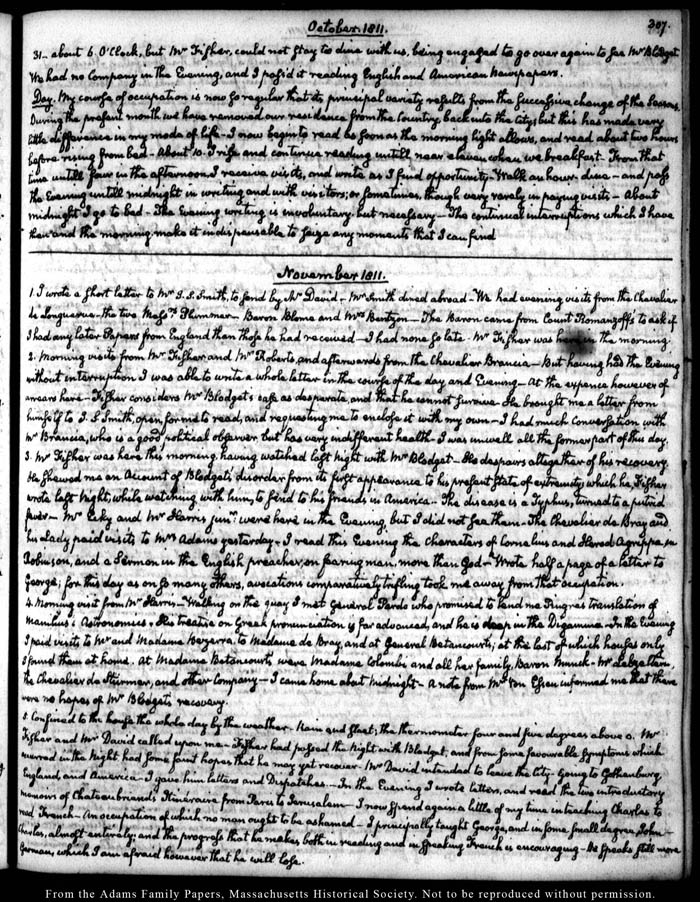 October. 1811.
307.
31. about 6. O'Clock, but Mr Fisher, could not stay to dine with us, being engaged to go over again to see Mr Blodget
We had no Company in the Evening, and I pass'd it reading English and American Newspapers.
Day. My course of occupation is now so regular that its principal variety results from the successive change of the Seasons.
During the present month we have removed our residence from the Country, back into the City, but this has made very
little difference in my mode of life. I now begin to read as soon as the morning light allows, and read about two hours
before rising from bed. About 10. I rise and continue reading untill near eleven when we breakfast. From that
time untill four in the afternoon I receive visits, and write as I find opportunity. Walk an hour. dine — and pass
the Evening untill midnight in writing and with visitors; or sometimes, though very rarely in paying visits — About
midnight I go to bed — The Evening writing is involuntary, but necessary — The continual interruptions which I have
then and the morning make it indispensable to seize any moments that I can find
November 1811.
1. I wrote a short letter to Mr J. S. Smith, to send by Mr David — Mr Smith dined abroad — We had evening visits from the Chevalier
de Longuerue — the two Messrs Plummer — Baron Blome and Mrs Bentzon — The Baron came from Count Romanzoff's to ask if
I had any later Papers from England than those he had received — I had none so late. Mr Fisher was here, in the morning.
2. Morning visits from Mr Fisher and Mr Roberts, and afterwards from the Chevalier Brancia — But having had the Evening
without interruption I was able to write a whole letter in the course of the day and Evening — At the expence however of
arrears here — Fisher considers Mr Blodget's case as desperate, and that he cannot survive. He brought me a letter from
himself to J. S. Smith, open, for me to read, and requesting me to enclose it with my own — I had much conversation with
Mr Brancia, who is a good political observer but has very indifferent health — I was unwell all the former part of this day.
3. Mr Fisher was here this morning, having watched last Night with Mr Blodget — He despairs altogether of his recovery.
He shewed me an Account of Blodget's disorder from its first appearance to his present state of extremity, which he, Fisher
wrote last Night, while watching with him, to send to his friends in America — The disease is a Typhus, turned to a putrid
fever — Mr and Mr Harris junr were here in the Evening, but I did not see them — The Chevalier de Bray and
his Lady paid visits to Mrs Adams yesterday — I read this Evening the characters of Cornelius and Herod Agrippa, in
Robinson, and a Sermon in the English preacher, on fearing man, more than God — Wrote half a page of a letter to
George; for this day as on so many others, avocations comparatively trifling took me away from that occupation.
4. Morning visit from Mr Harris — Walking on the quay I met General Pardo who promised to lend me Pingré's translation of
Manilius's Astronomics. His treatise on Greek pronunciation is far advanced, and he is deep in the Digamma — In the Evening
I paid visits to Mr and Madame Bezerra, to Madame de Bray, and at General Betancourt's; at the last of which houses only
I found them at home. At Madame Betancourt's, were Madame Colombi and all her family, Baron Munck — Mr
the Chevalier de Sturmer, and other Company — I came home about midnight — A note from Mr Von Essen informed me that there
were no hopes of Mr Blodget's recovery.
5. Confined to the house the whole day by the weather — Rain and sleet; the thermometer four and five degrees above 0. Mr
Fisher and Mr David called upon me — Fisher had passed the Night with Blodget, and from some favourable symptoms which
occurred in the Night had some faint hopes that he may yet recover. Mr David intended to leave the City — Going to Gothenburg,
England, and America — I gave him letters and Dispatches — In the Evening I wrote letters, and read the two introductory
memoirs of Chateaubriand's Itineraire from Paris to Jerusalem — I now spend again a little of my time in teaching Charles to
read French — An occupation of which no man ought to be ashamed — I principally taught George, and in some small degree, John —
Charles, almost entirely; and the progress that he makes both in reading and in speaking French is encouraging — He speaks still more
German, which I am afraid however that he will lose.
From the Adams Family Papers, Massachusetts Historical Society. Not to be reproduced without permission.